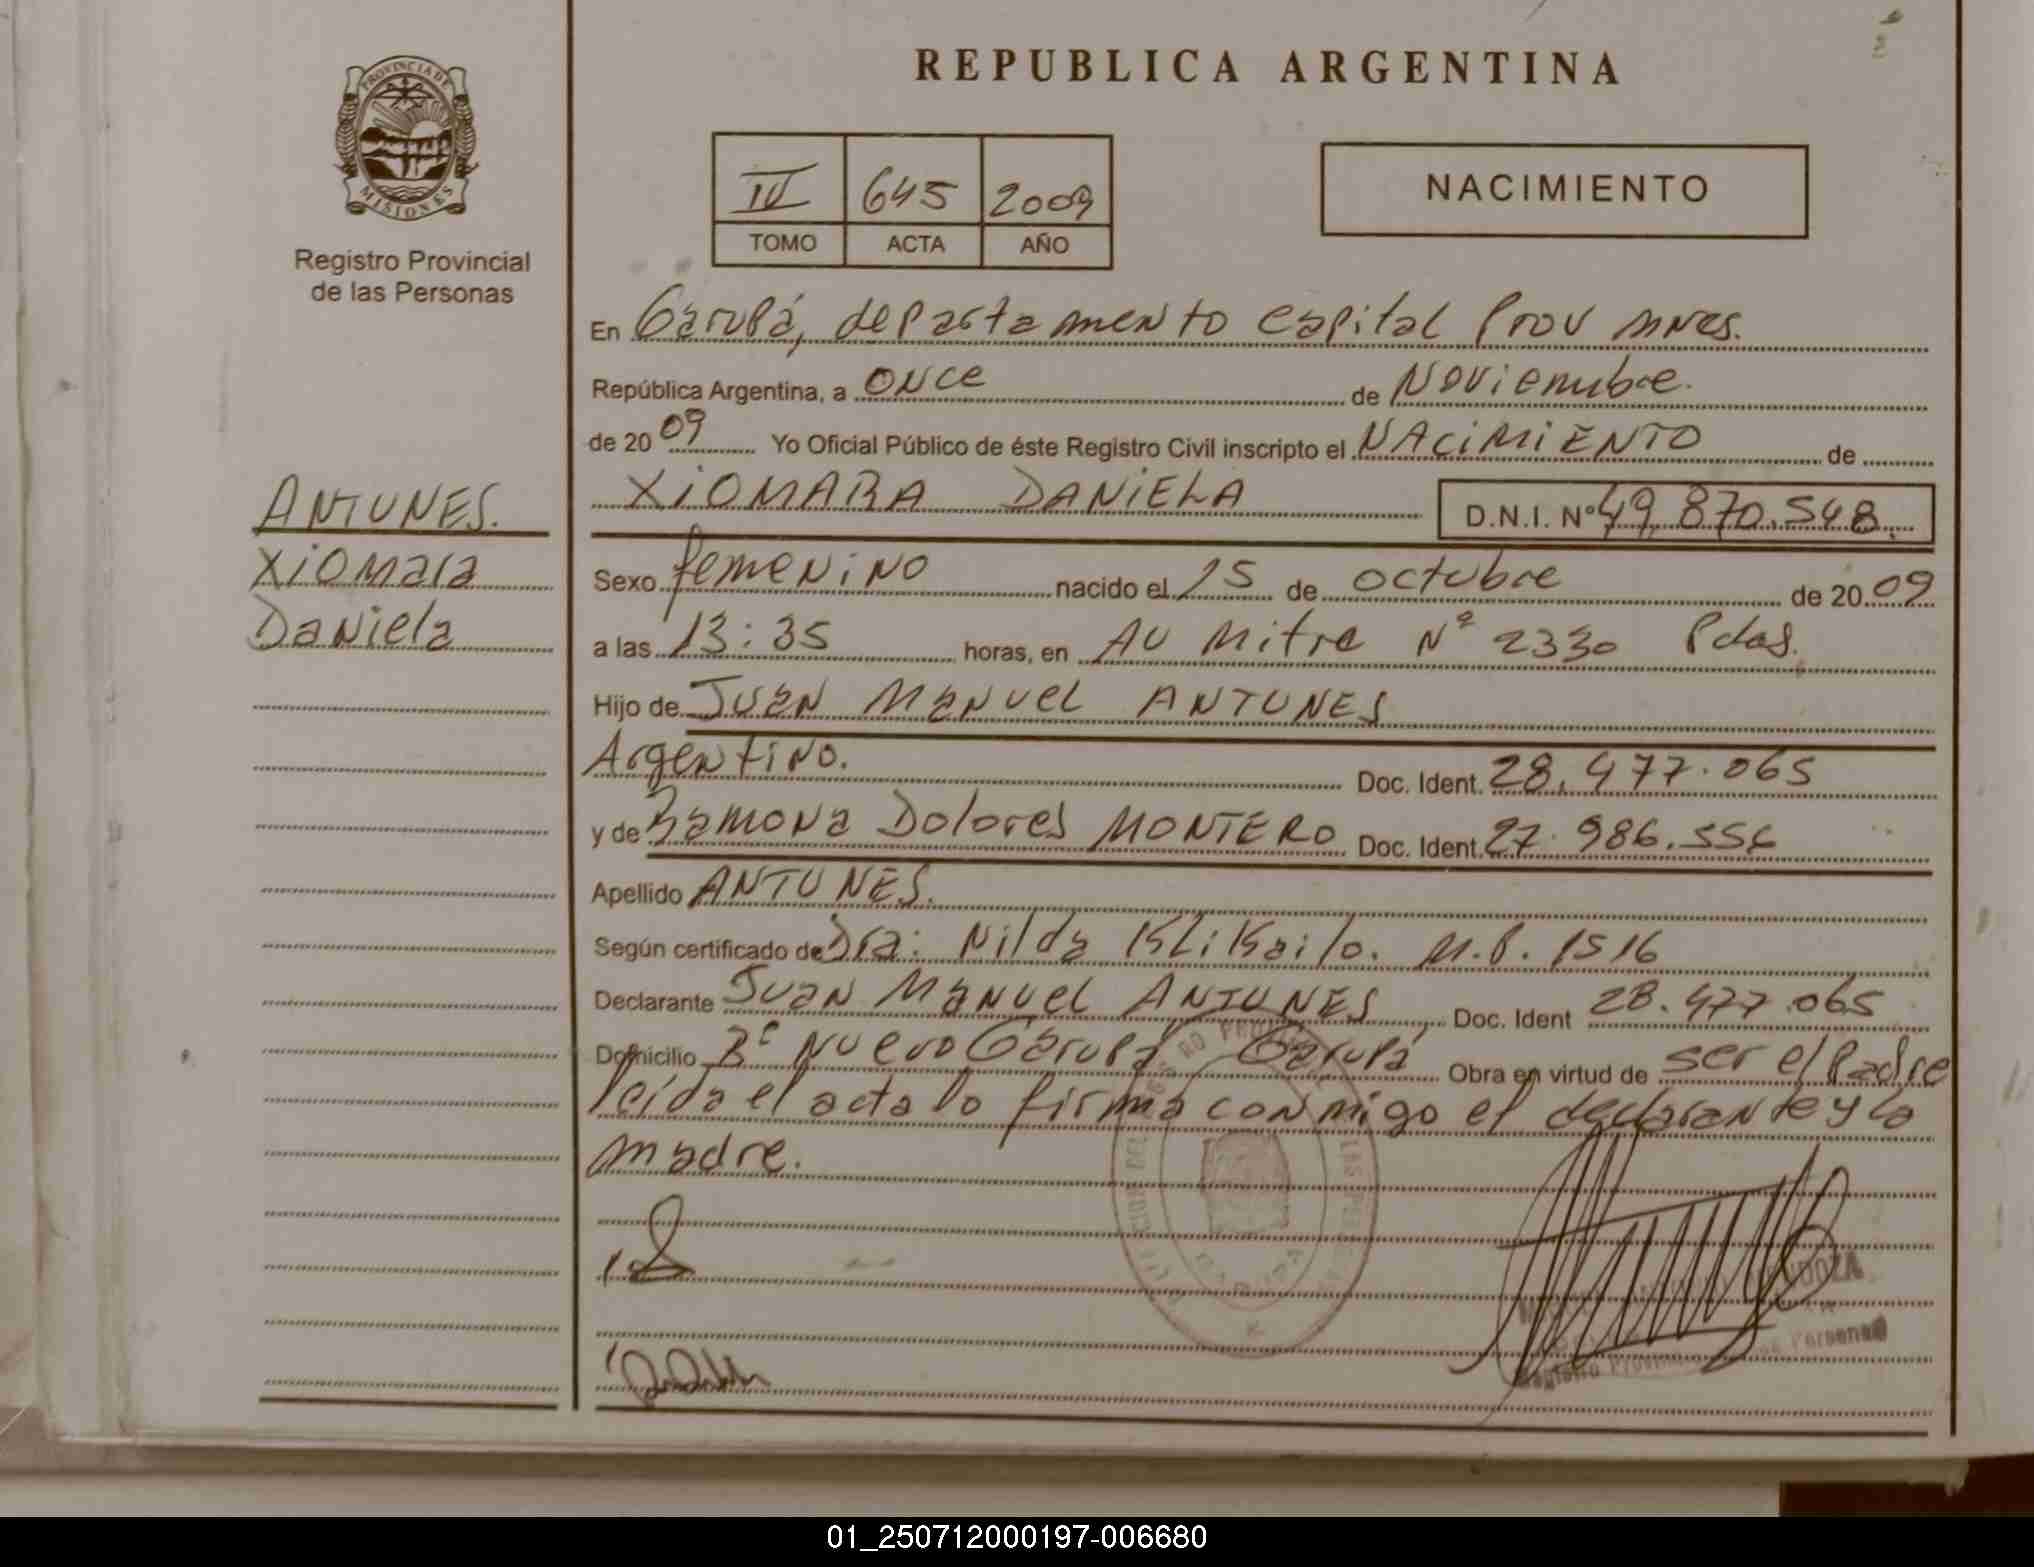 REPUBLICA ARGENTINA
PROVINCIA DE MISIONES
Registro Provincial
de las Personas
IV 645 2009
TOMO ACTA AÑO
NACIMIENTO
En Garupá, departamento capital Prov mnes.
República Argentina, a once de Noviembre.
de 20 09 Yo Oficial Público de éste Registro Civil inscripto el NACIMIENTO de
XIOMARA DANIELA D.N.I. Nº 49.870.548.
ANTUNES.
Xiomara
Daniela
Sexo femenino nacido el 15 de octubre de 20 09
a las 13:35 horas, en AV Mitre Nº 2330 Pdas.
Hijo de Juan Manuel ANTUNES
Argentino. Doc. Ident. 28.477.065
y de Ramona Dolores MONTERO Doc. Ident. 27.986.556
Apellido ANTUNES.
Según certificado de Dra: Nilda M.P. 1516
Declarante Juan Manuel ANTUNES Doc. Ident 28.477.065
Domicilio Bº Nuevo Garupá Garupá Obra en virtud de ser el Padre
leída el acta lo firma conmigo el declarante y la
madre.
MENDOZA
Registro Provincial Personas
01_250712000197-006680